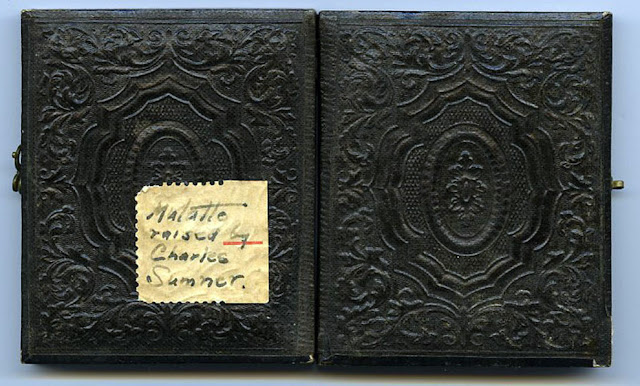 Mulatto
raised by
Charles
Sumner.